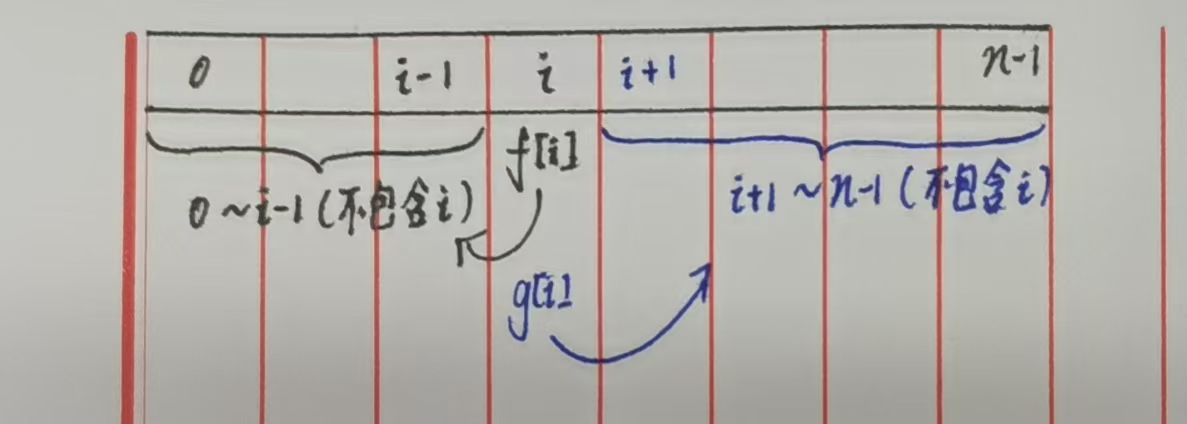 0 i-1 i i+1 n-1
f[i]
0~i-1(不包含i) i+1~n-1(不包含i)
g[i]